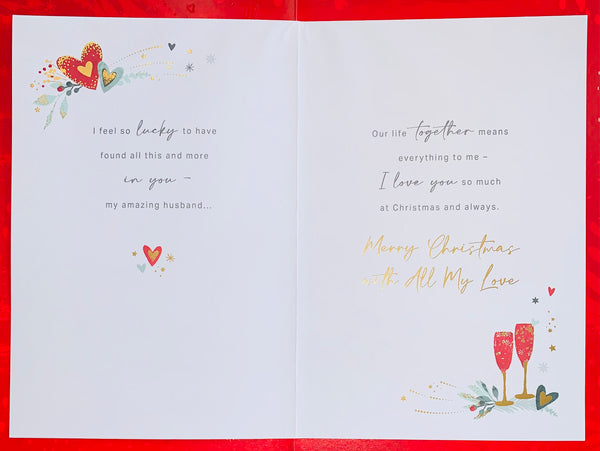 I feel so lucky to have
found all this and more
in you –
my amazing husband...
Our life together means
everything to me –
I love you so much
at Christmas and always.
Merry Christmas
with All My Love